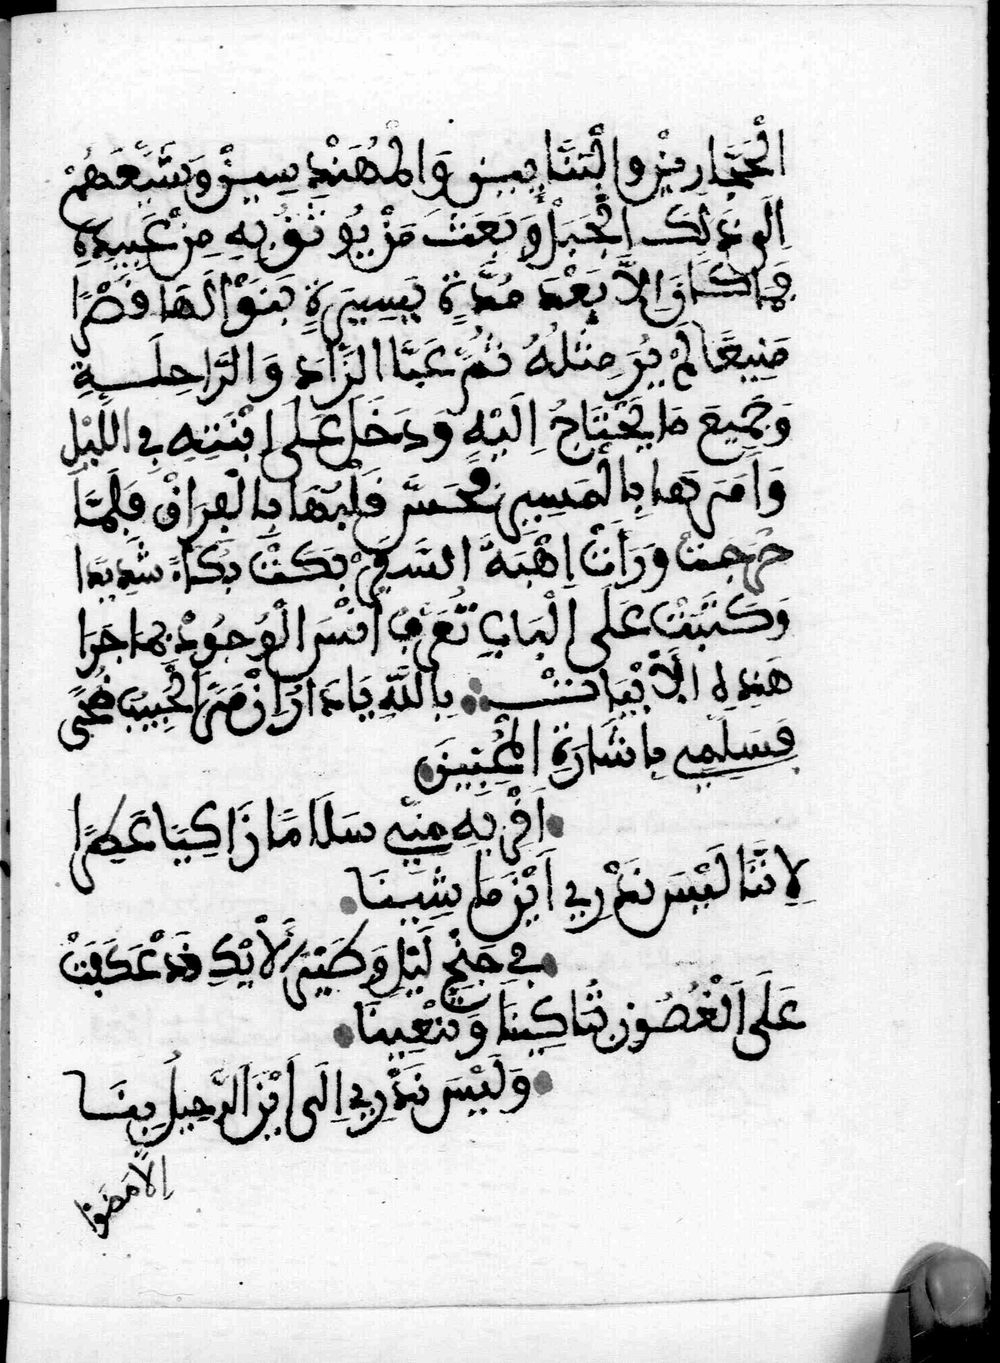 الْحَجَّارِينْ وَالْبَنَّايِينْ وَالْمُهَنْدِسِينْ وَشَيَّعَهُمْ
اِلَى ذَلِكَ الْجَبَلْ وَبَعَثَ مَنْ يُوثَقُ بِهِ مِنْ عَبِيدِهِ
فَمَا كَانَ اِلَّا بَعْدَ مُدَّةٍ يَسِيرَةٍ بَنَوْا لَهَا قَصْرًا
مَنِيعًا لَمْ يُرَ مِثْلُهُ ثُمَّ عَبَّا الزَّادَ وَالرَّاحِلَةِ
وَجَمِيعَ مَا يَحْتَاجُ اِلَيْهِ وَدَخَلَ عَلَى اِبْنَتِهِ فِي اللَّيْلِ
وَاَمَرَهَا بِالْمَسِيرِ فَحَسَّ قَلْبُهَا بِالْفِرَاقْ فَلَمَّا
خَرَجَتْ وَرَأَتْ اِهْبَةَ السَّفَرْ بَكَتْ بُكَاءً شَدِيدًا
وَكَتَبَتْ عَلَى الْبَابِ تُعَرِّفُ اُنْسَ الْوُجُودْ بِمَا جَرَا
هَذِهِ الْاَبْيَاتْ بِاللَّهِ يَا دَارُ اِنْ مَرَّ الْحَبِيبُ ضُحًى
فَسَلِّمِي بِاشَارَةِ الْمُحِبِّينَ
اَقْرِيهِ مِنِّي سَلَامًا زَاكِيًا عَطِرًا
لِاَنَّنَا لَيْسَ نَدْرِي اَيْنَ مَاشِينَا
فِي جَنْحِ لَيْلٍ وَطَيْرُ الْاَيْكِ قَدْ عَكَفَتْ
عَلَى الْغُصُونِ تُبَاكِينَا وَتَنْعِينَا
وَلَيْسَ نَدْرِي اِلَى اَيْنَ الرَّحِيلُ بِنَا